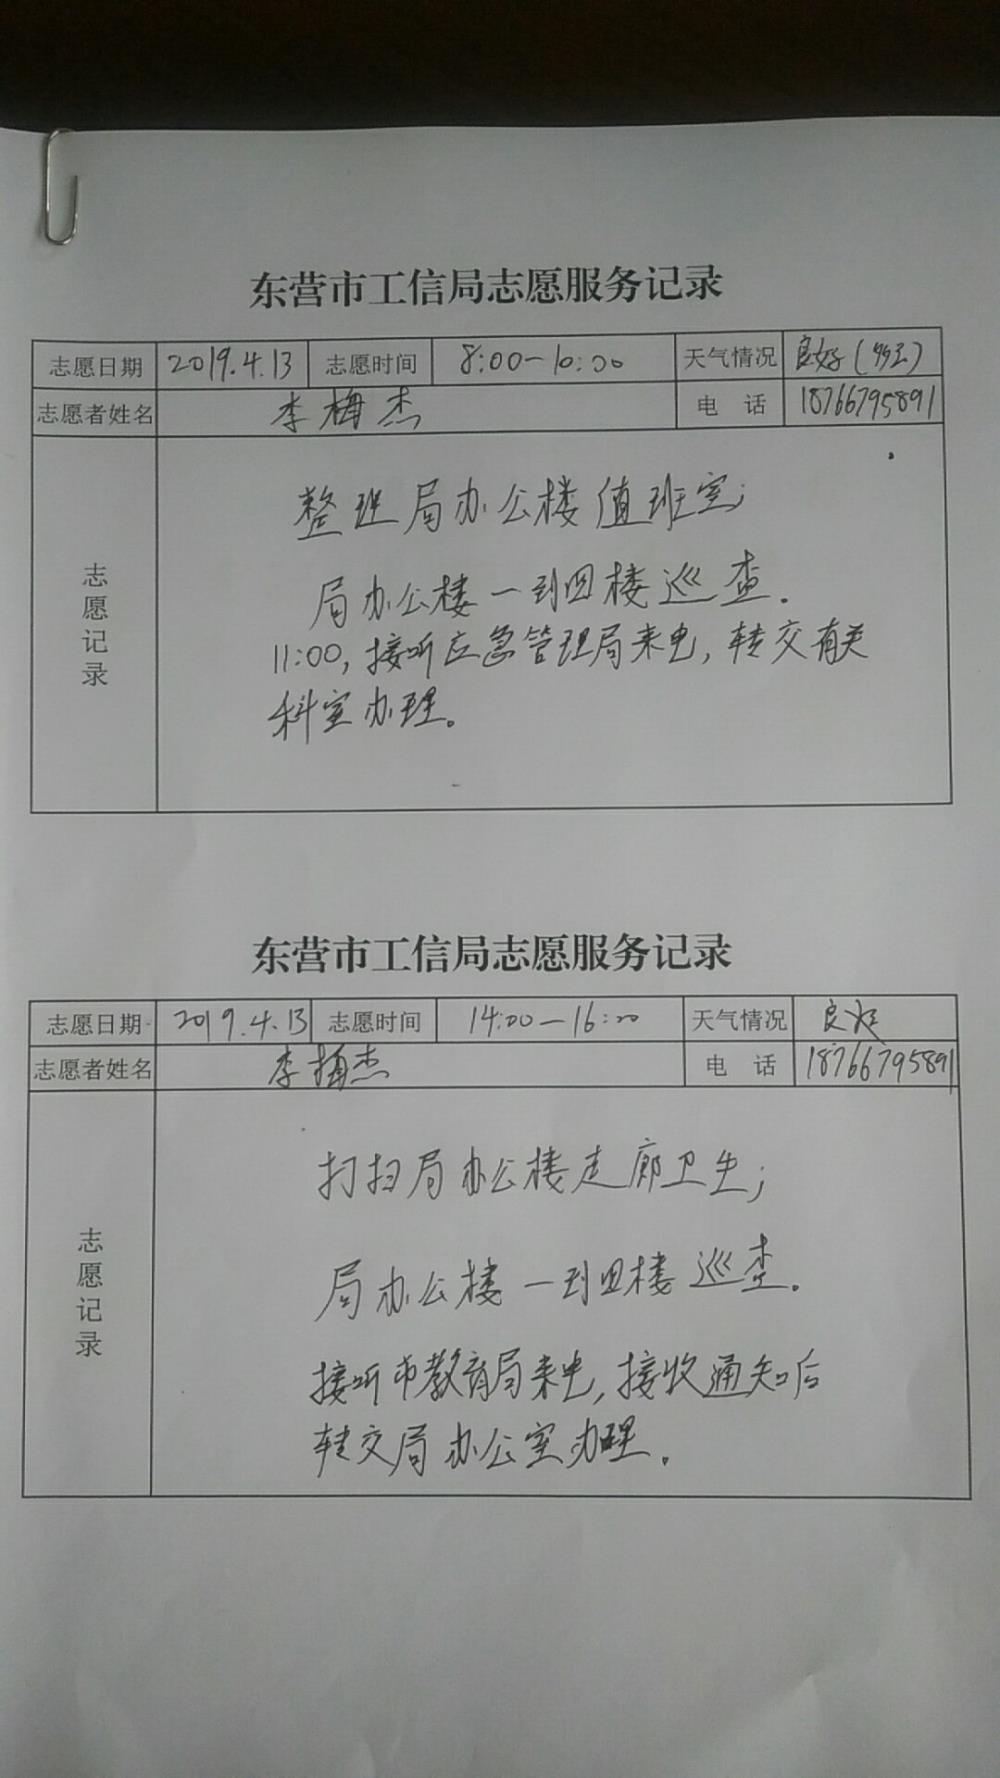 东营市工信局志愿服务记录
志愿日期 2019.4.13 志愿时间 8:00—10:00 天气情况 良好(多云)
志愿者姓名 李梅杰 电 话 18766795891
志愿记录
整理局办公楼值班室;
局办公楼一到四楼巡查.
11:00,接听应急管理局来电,转交有关
科室办理。
东营市工信局志愿服务记录
志愿日期 2019.4.13 志愿时间 14:00—16:00 天气情况 良好
志愿者姓名 李梅杰 电 话 18766795891
志愿记录
打扫局办公楼走廊卫生;
局办公楼一到四楼巡查.
接听市教育局来电,接收通知后
转交局办公室办理.